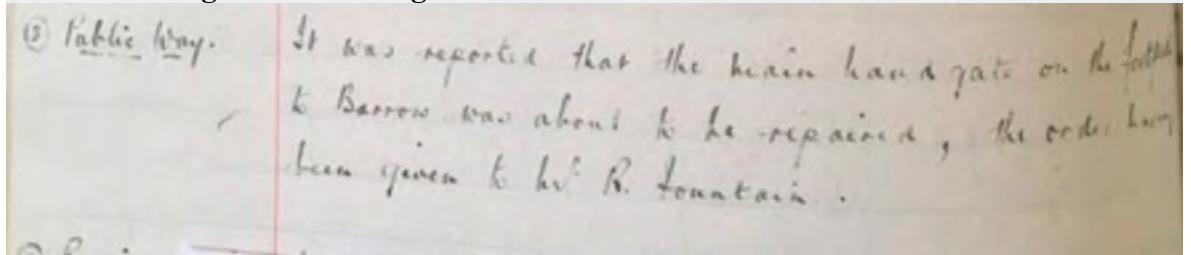 (3) Public Way. It was reported that the main hand gate on the footpath
to Barrow was about to be repaired, the order having
been given to Mr R. Fountain.